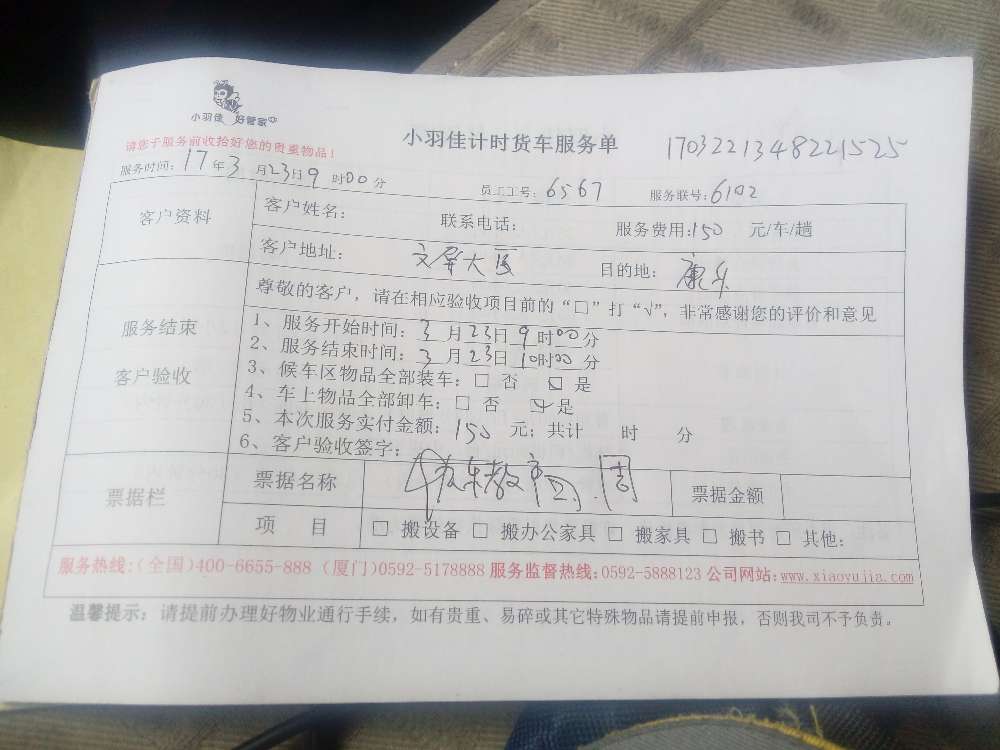 小羽佳 好管家
小羽佳计时货车服务单
1703221348221525
请您于服务前收拾好您的贵重物品!
服务时间:17年3月23日9时00分
员工工号:6567 服务联号:6102
客户资料
客户姓名: 联系电话: 服务费用:150 元/车/趟
客户地址: 文屏大 目的地: 康乐
服务结束
客户验收
尊敬的客户,请在相应验收项目前的“□”打“√”,非常感谢您的评价和意见
1、服务开始时间:3月23日9时00分
2、服务结束时间:3月23日10时00分
3、候车区物品全部装车:□ 否 ☑ 是
4、车上物品全部卸车:□ 否 ☑ 是
5、本次服务实付金额:150 元;共计 时 分
6、客户验收签字:
东教育 周
票据栏
票据名称 票据金额
项 目 □ 搬设备 □ 搬办公家具 □ 搬家具 □ 搬书 □ 其他:
服务热线:(全国)400-6655-888 (厦门)0592-5178888 服务监督热线:0592-5888123 公司网站:www.xiaoyujia.com
温馨提示:请提前办理好物业通行手续,如有贵重、易碎或其它特殊物品请提前申报,否则我司不予负责。